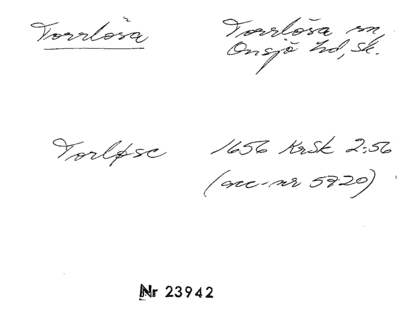 Torrlösa Torrlösa sn
Onsjö hd, Sk.
Torløse 1656 KrSk 2:56
(acc-nr 5920)
Nr 23942